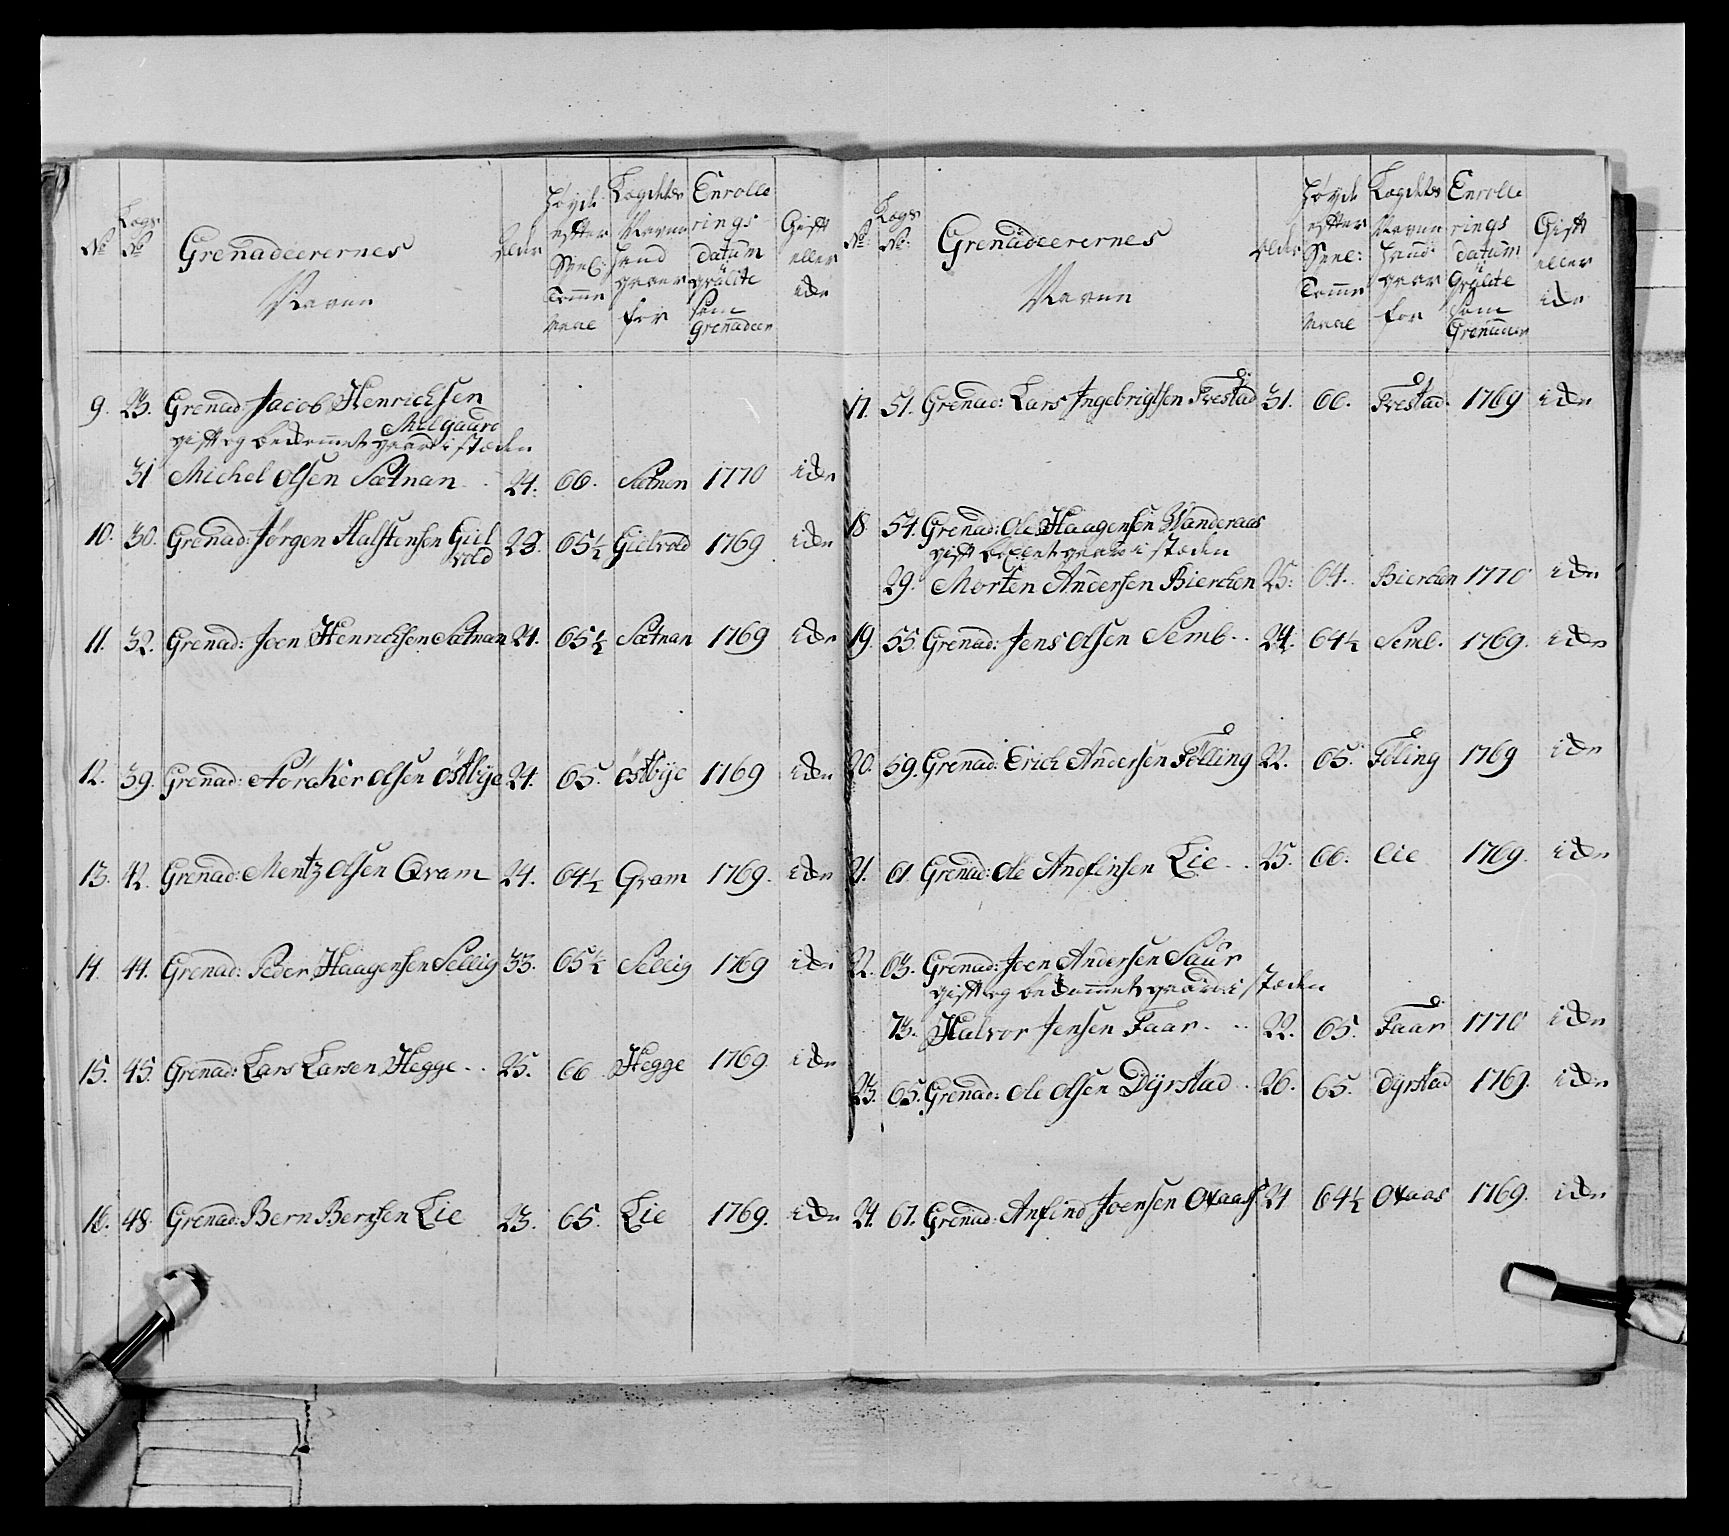 No
Lægs No
Grenadeerernes Navne
Alder
Høyde effter Siel: Tomme Maal
Lægdetes Navne hand giver for
Enrolle rings datum qvalite som Grenadeer
Gifft eller ide
9. 23. Grenad: Jacob Henrichsen Melgaard
gifft og bekommet gaard i stæden
31 Michel Olsen Sætnan 24. 66. Sætnan 1770 ide
10. 30. Grenad: Jørgen Halstensen Gielvold 28. 65½ Gielvold 1769 ide
11. 32. Grenad: Joen Henrichsen Sætnan 24. 65½ Sætnan 1769 ide
12. 39. Grenad: Olsen Östbye 24. 65. östbye 1769 ide
13. 42. Grenad: Mentz Olsen Qvam 24. 64½ Qvam 1769. ide
14. 44. Grenad: Peder Haagensen Sellig 33. 65½ Sellig 1769 ide
15. 45. Grenad: Lars Larsen Hegge 25. 66 Hegge 1769. ide
16. 48. Grenad: Bern Bernsen Lie 23. 65. Lie 1769. ide
No
Lægs No:
Grenadeerernes Navne
Alder
Høyde effter Siel: Tomme Maal
Lægdetes Navne hand giver for
Enrolle rings datum qvalite som Grenadeer
Gifft eller ide
17. 51. Grenad: Lars Ingebrigtsen Frestad 31. 66. Frestad 1769 ide
18. 54. Grenad: Ole Haagensen Wanderaas
gifft gaard i stæden
29. Morten Andersen Bierchen 25. 64. Bierchen 1770 ide
19. 55. Grenad: Jens Olsen Semb 24. 64½ Semb. 1769. ide
20. 59. Grenad: Erich Andersen Følling 22. 65. Føling 1769 ide
21. 61. Grenad: Ole Andfinsen Lie 25. 66. Lie 1769. ide
22. 63. Grenad: Joen Andersen Saur
gifft og bekommet gaard i stæden
73. Halvor Jensen Faar 22. 65. Faar 1770 ide
23. 65. Grenad: Ole Olsen Dÿrstad 26. 65. Dÿrstad 1769. ide
24. 67. Grenad: Anfind Joensen Oxaas 24 64½ Oxaas 1769. ide